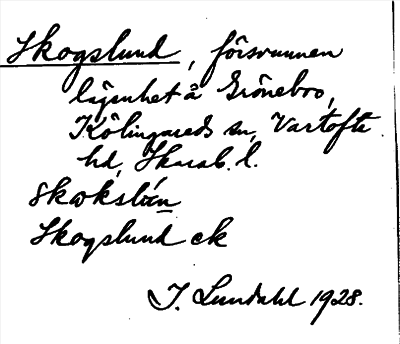 Skogslund, försvunnen
lägenhet å Grönebo,
Kölingareds sn, Vartofte
hd, Skarab. l.
Skogslund ek
I. Lundahl 1928.